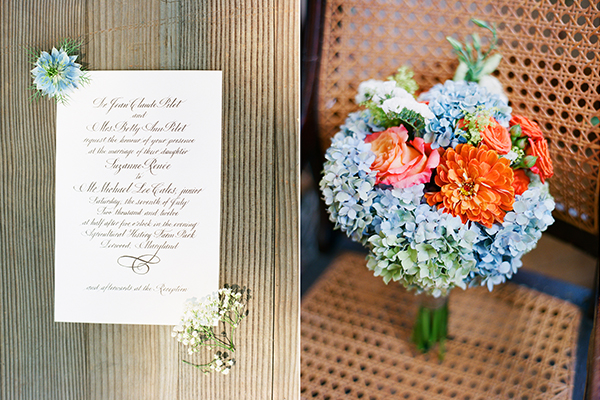 Dr Jean Claude Pilet
and
Mrs Betty Ann Pilet
request the honour of your presence
at the marriage of their daughter
Suzanne Renée
to
Mr Michael Lee Cales, junior
Saturday, the seventh of July
Two thousand and twelve
at half after five o'clock in the evening
Agricultural History Farm Park
Derwood, Maryland
and afterwards at the Reception